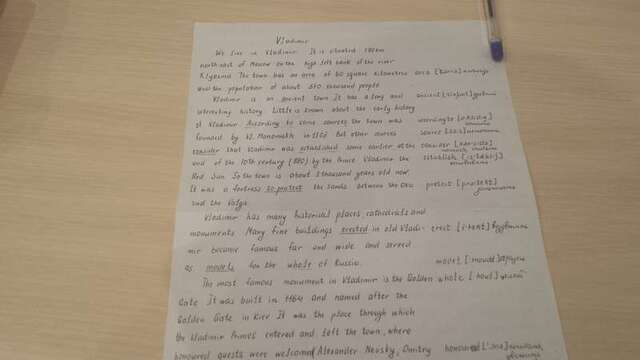 Vladimir
We live in Vladimir. It is situated 180km
north-east of Moscow on the high left bank of the river
Klyazma The town has an area of 60 square kilometres area
and the population of about 360 thousand people
Vladimir is an ancient town It has a long and ancient
interesting history Little is known about the early history
of Vladimir According to some sources the town was according to
founded by Vl. Monomakh in 1108 But other sources source
consider that Vladimir was established some earlier at the consider
end of the 10th century (990) by the Prince Vladimir the establish
Red Sun. So the town is about a thousand years old now.
It was a fortress to protect the lands between the Oka protect
and the Volga.
Vladimir has many historical places, cathedrals and
monuments Many fine buildings erected in old Vladi- erect
mir became famous far and wide and served
as models for the whole of Russia.
The most famous monument in Vladimir is the Golden whole
Gate It was built in 1164 and named after the
Golden Gate in Kiev It was the place through which
the Vladimir Princes entered and left the town, where
honoured guests were welcomed Alexander Nevsky, Dmitry honoured